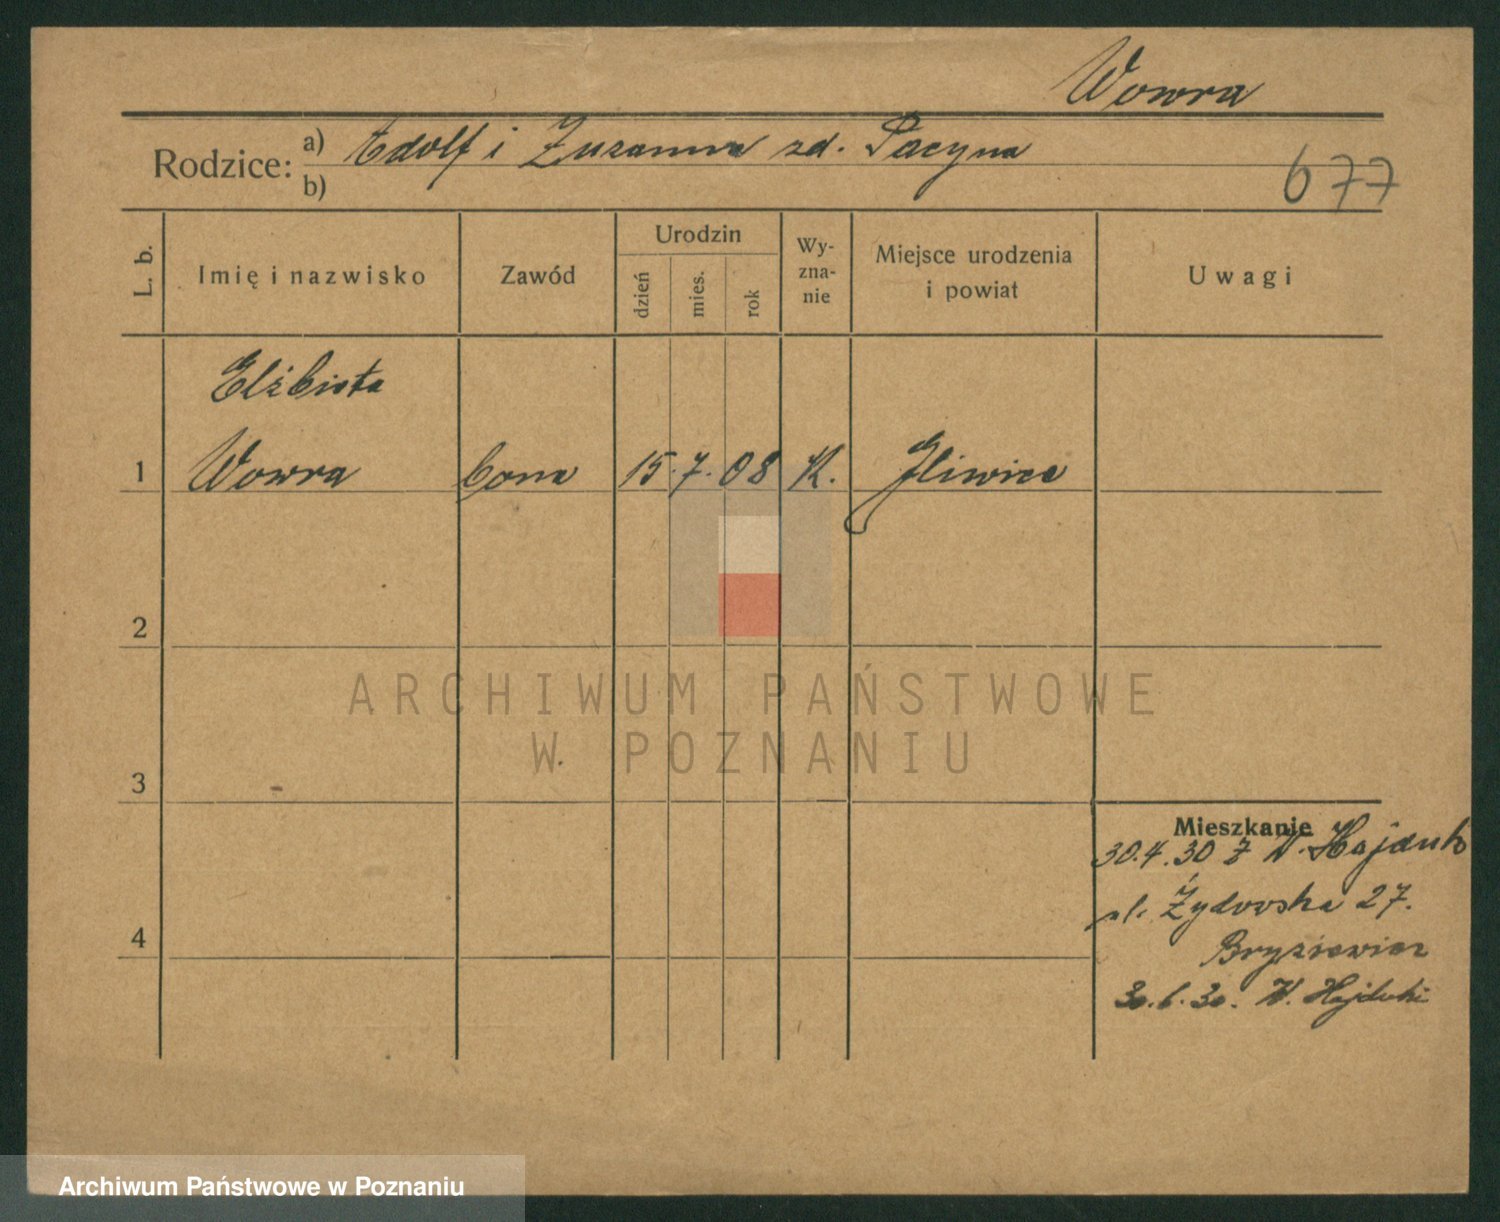 Wowra
Rodzice: a) Adolf i Zuzanna zd. Pacyna
b)
677
L. b.
Imię i nazwisko
Zawód
Urodzin
dzień
mies.
rok
Wy-
zna-
nie
Miejsce urodzenia
i powiat
Uwagi
Elżbieta
1 Wowra córka 15. 7. 08 K. Gliwice
2
3
4
Mieszkanie
30.4.30 z W. Hajduk
ul. Żydowska 27.
30.6.30. W. Hajduki
ARCHIWUM PAŃSTWOWE
W POZNANIU
Archiwum Państwowe w Poznaniu